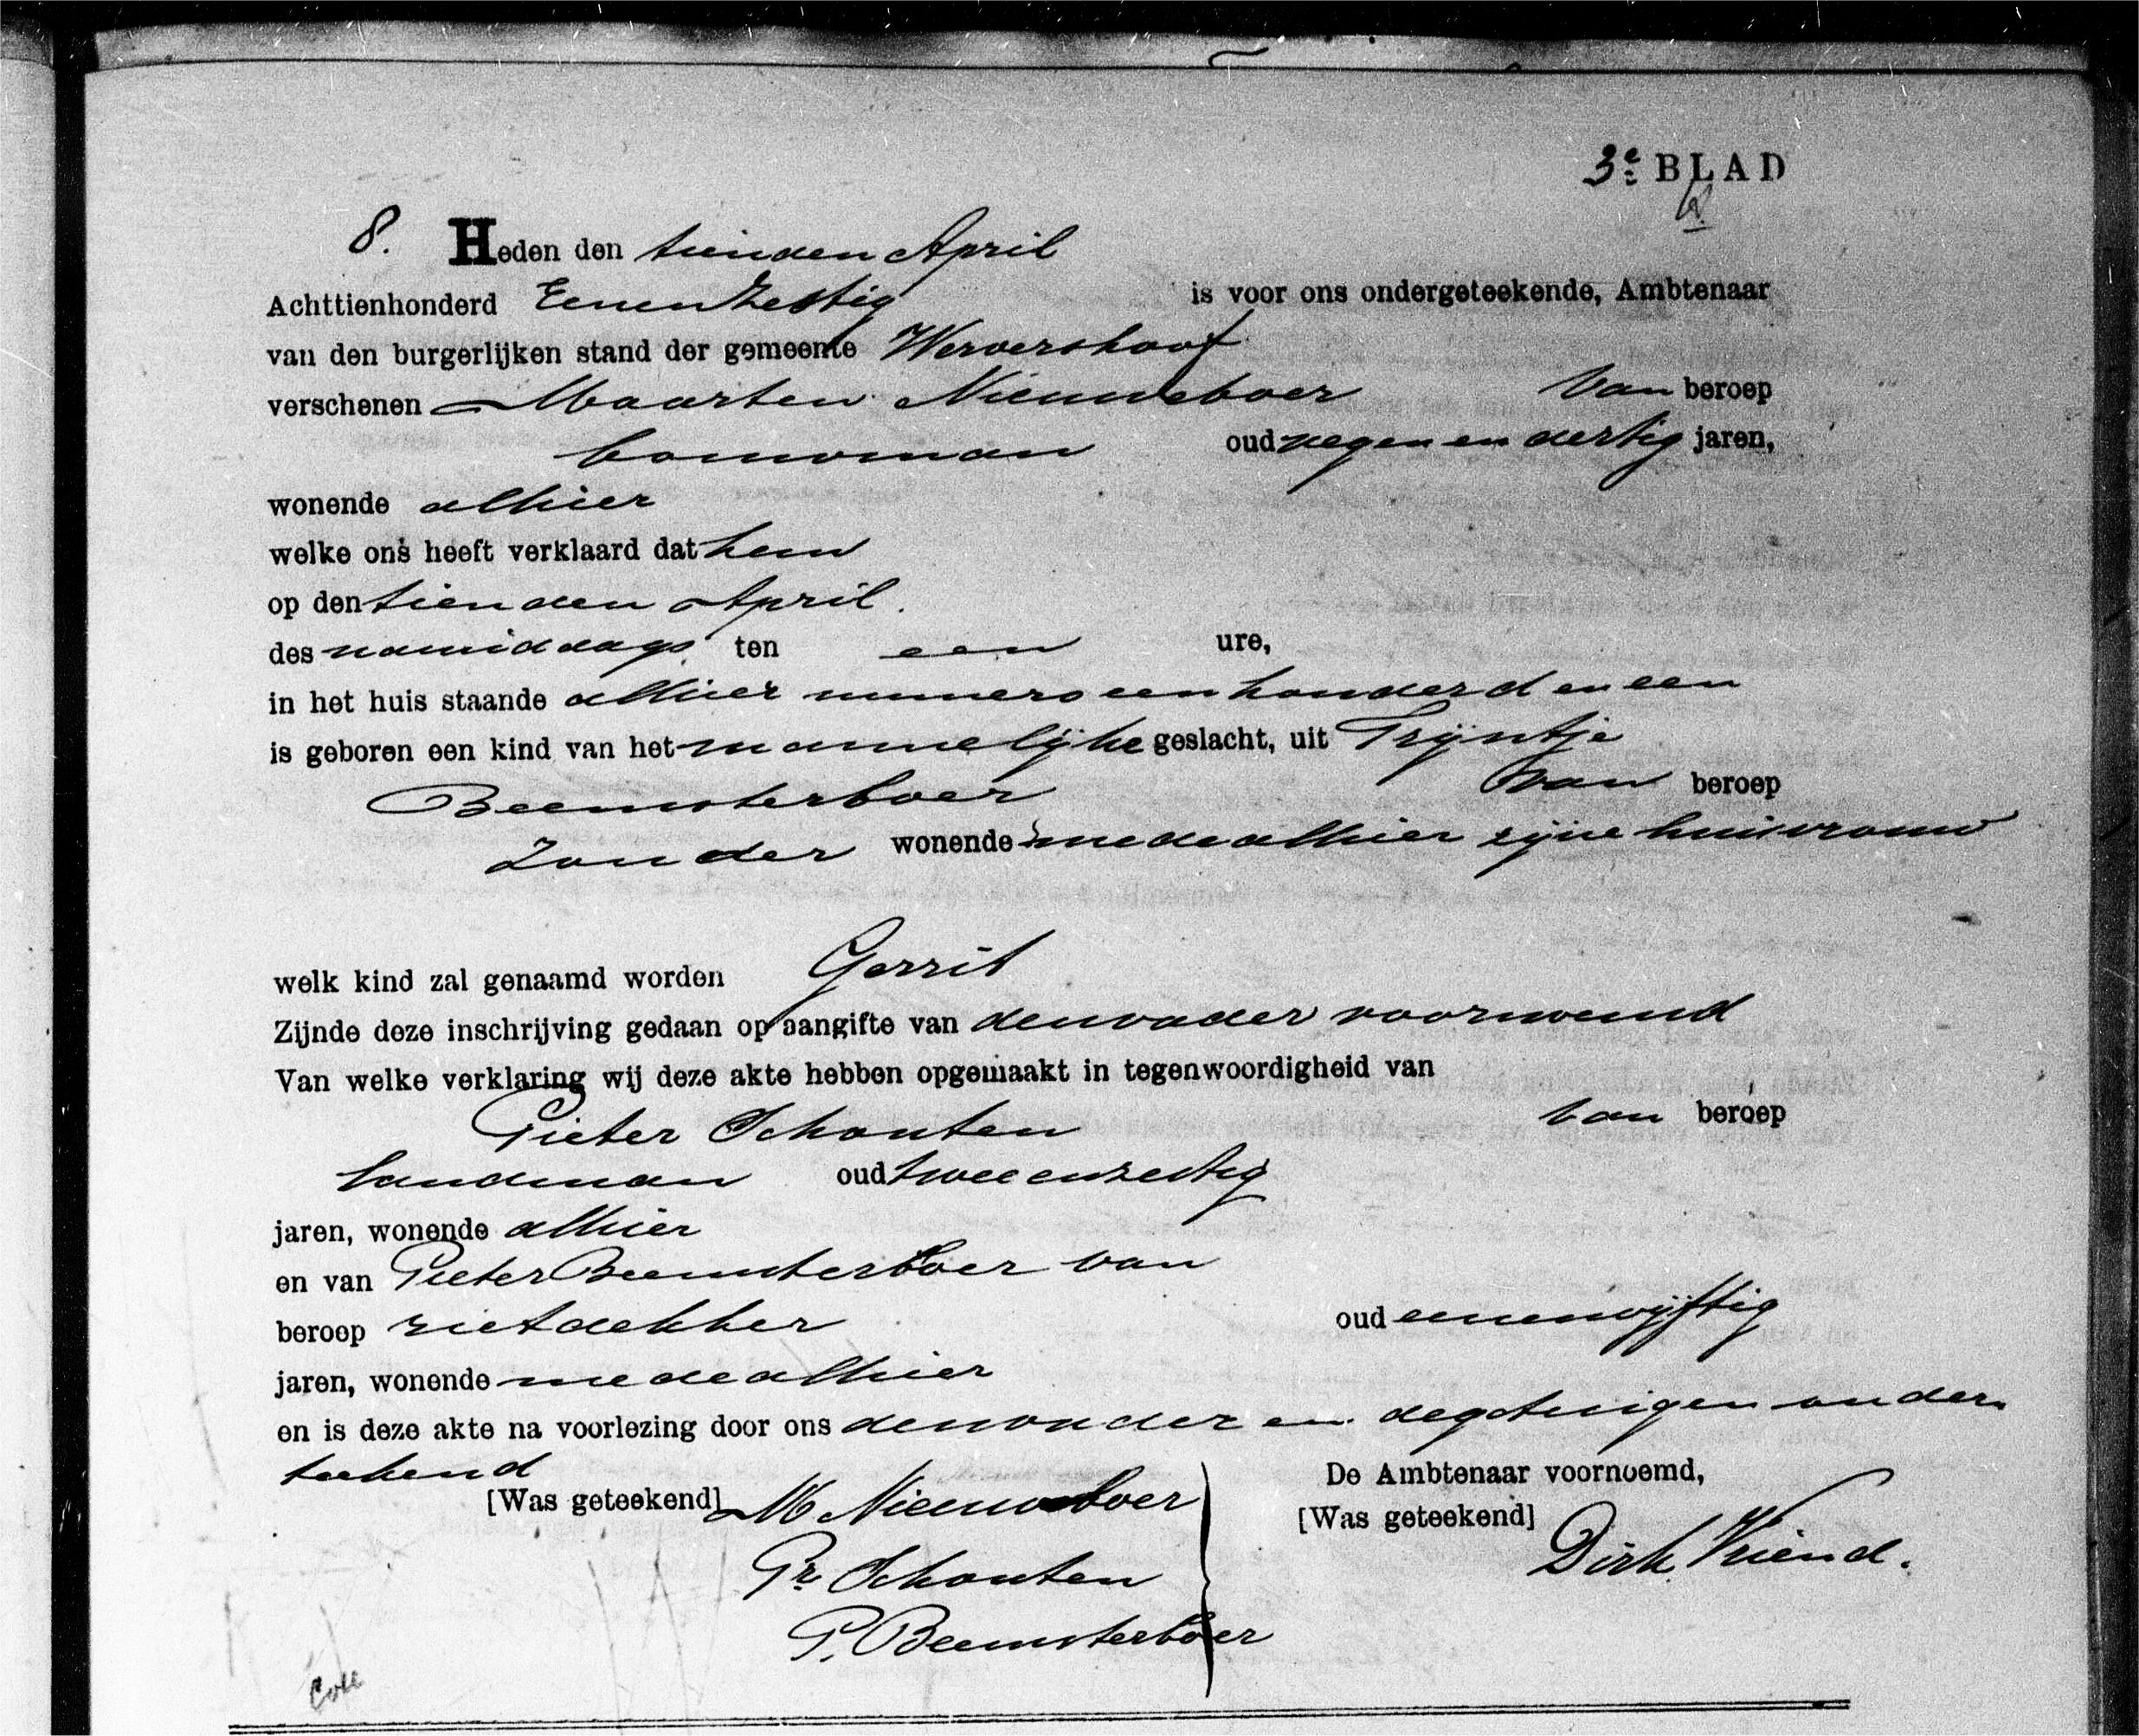 3e BLAD
8. Heden den tienden April
Achttienhonderd Eenenzestig is voor ons ondergeteekende, Ambtenaar
van den burgerlijken stand der gemeente Wervershoof
verschenen Maarten Nieuweboer van beroep
bouwman oud negen en dertig jaren,
wonende alhier
welke ons heeft verklaard dat hem
op den tienden April.
des namiddags ten een ure,
in het huis staande alhier numero een honderd en een
is geboren een kind van het mannelijke geslacht, uit Trijntje
Beemsterboer van beroep
Zonder wonende mede alhier zijne huisvrouw
welk kind zal genaamd worden Gerrit
Zijnde deze inschrijving gedaan op aangifte van den vader voornoemd
Van welke verklaring wij deze akte hebben opgemaakt in tegenwoordigheid van
Pieter Schouten van beroep
landman oud twee en zestig
jaren, wonende alhier
en van Pieter Beemsterboer van
beroep rietdekker oud eenenvijftig
jaren, wonende mede alhier
en is deze akte na voorlezing door ons den vader en de getuigen onder
teekend
De Ambtenaar voornoemd,
[Was geteekend] M Nieuweboer
[Was geteekend] Dirk Vriend.
Pr Schouten
P. Beemsterboer
Coll